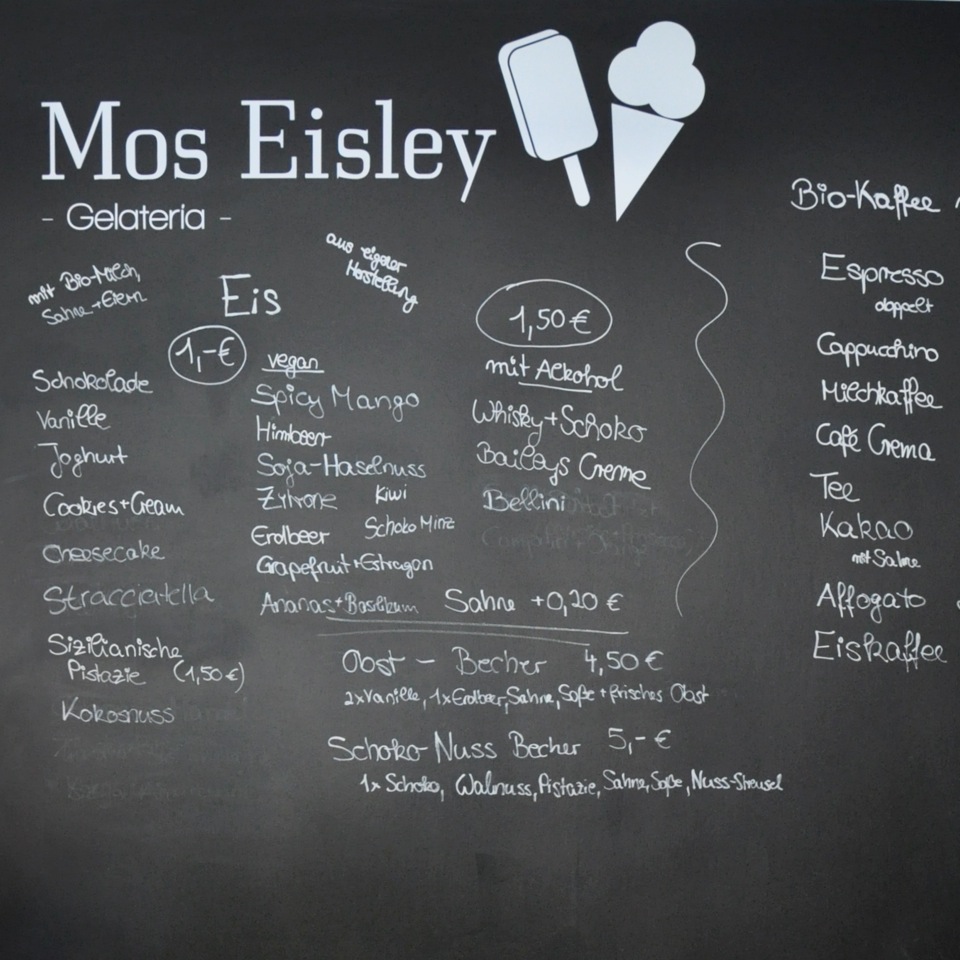 Mos Eisley
- Gelateria -
mit Bio-Milch,
Sahne + Eiern
Eis
aus eigener
Herstellung
1,-€
Schokolade
Vanille
Joghurt
Cookies + Cream
Cheesecake
Stracciatella
Sizilianische
Pistazie (1,50 €)
Kokosnuss
vegan
Spicy Mango
Himbeer
Soja-Haselnuss
Zitrone Kiwi
Erdbeer Schoko Minz
Grapefruit + Estragon
Ananas + Basilikum
1,50 €
mit Alkohol
Whisky + Schoko
Baileys Creme
Bellini
Sahne +0,20 €
Obst - Becher 4,50 €
2x Vanille, 1x Erdbeer, Sahne, Soße + frisches Obst
Schoko-Nuss Becher 5,- €
1x Schoko, Walnuss, Pistazie, Sahne, Soße, Nuss-Streusel
Bio-Kaffee
Espresso
doppelt
Cappuchino
Milchkaffee
Café Crema
Tee
Kakao
mit Sahne
Affogato
Eiskaffee